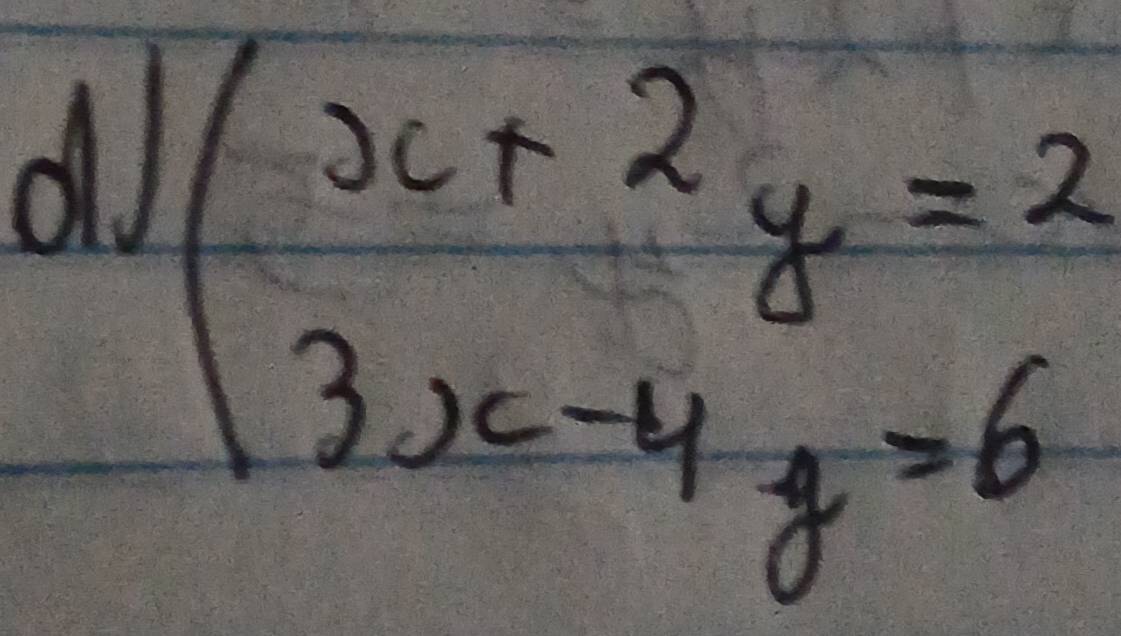 d) ( x + 2y = 2
3x - 4y = 6